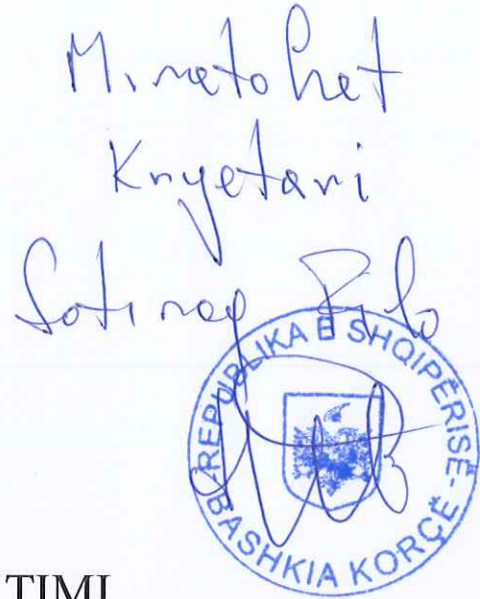 Miratohet
Kryetari
Sotiraq Filo
-REPUBLIKA E SHQIPËRISË-
BASHKIA KORÇË
TIMI